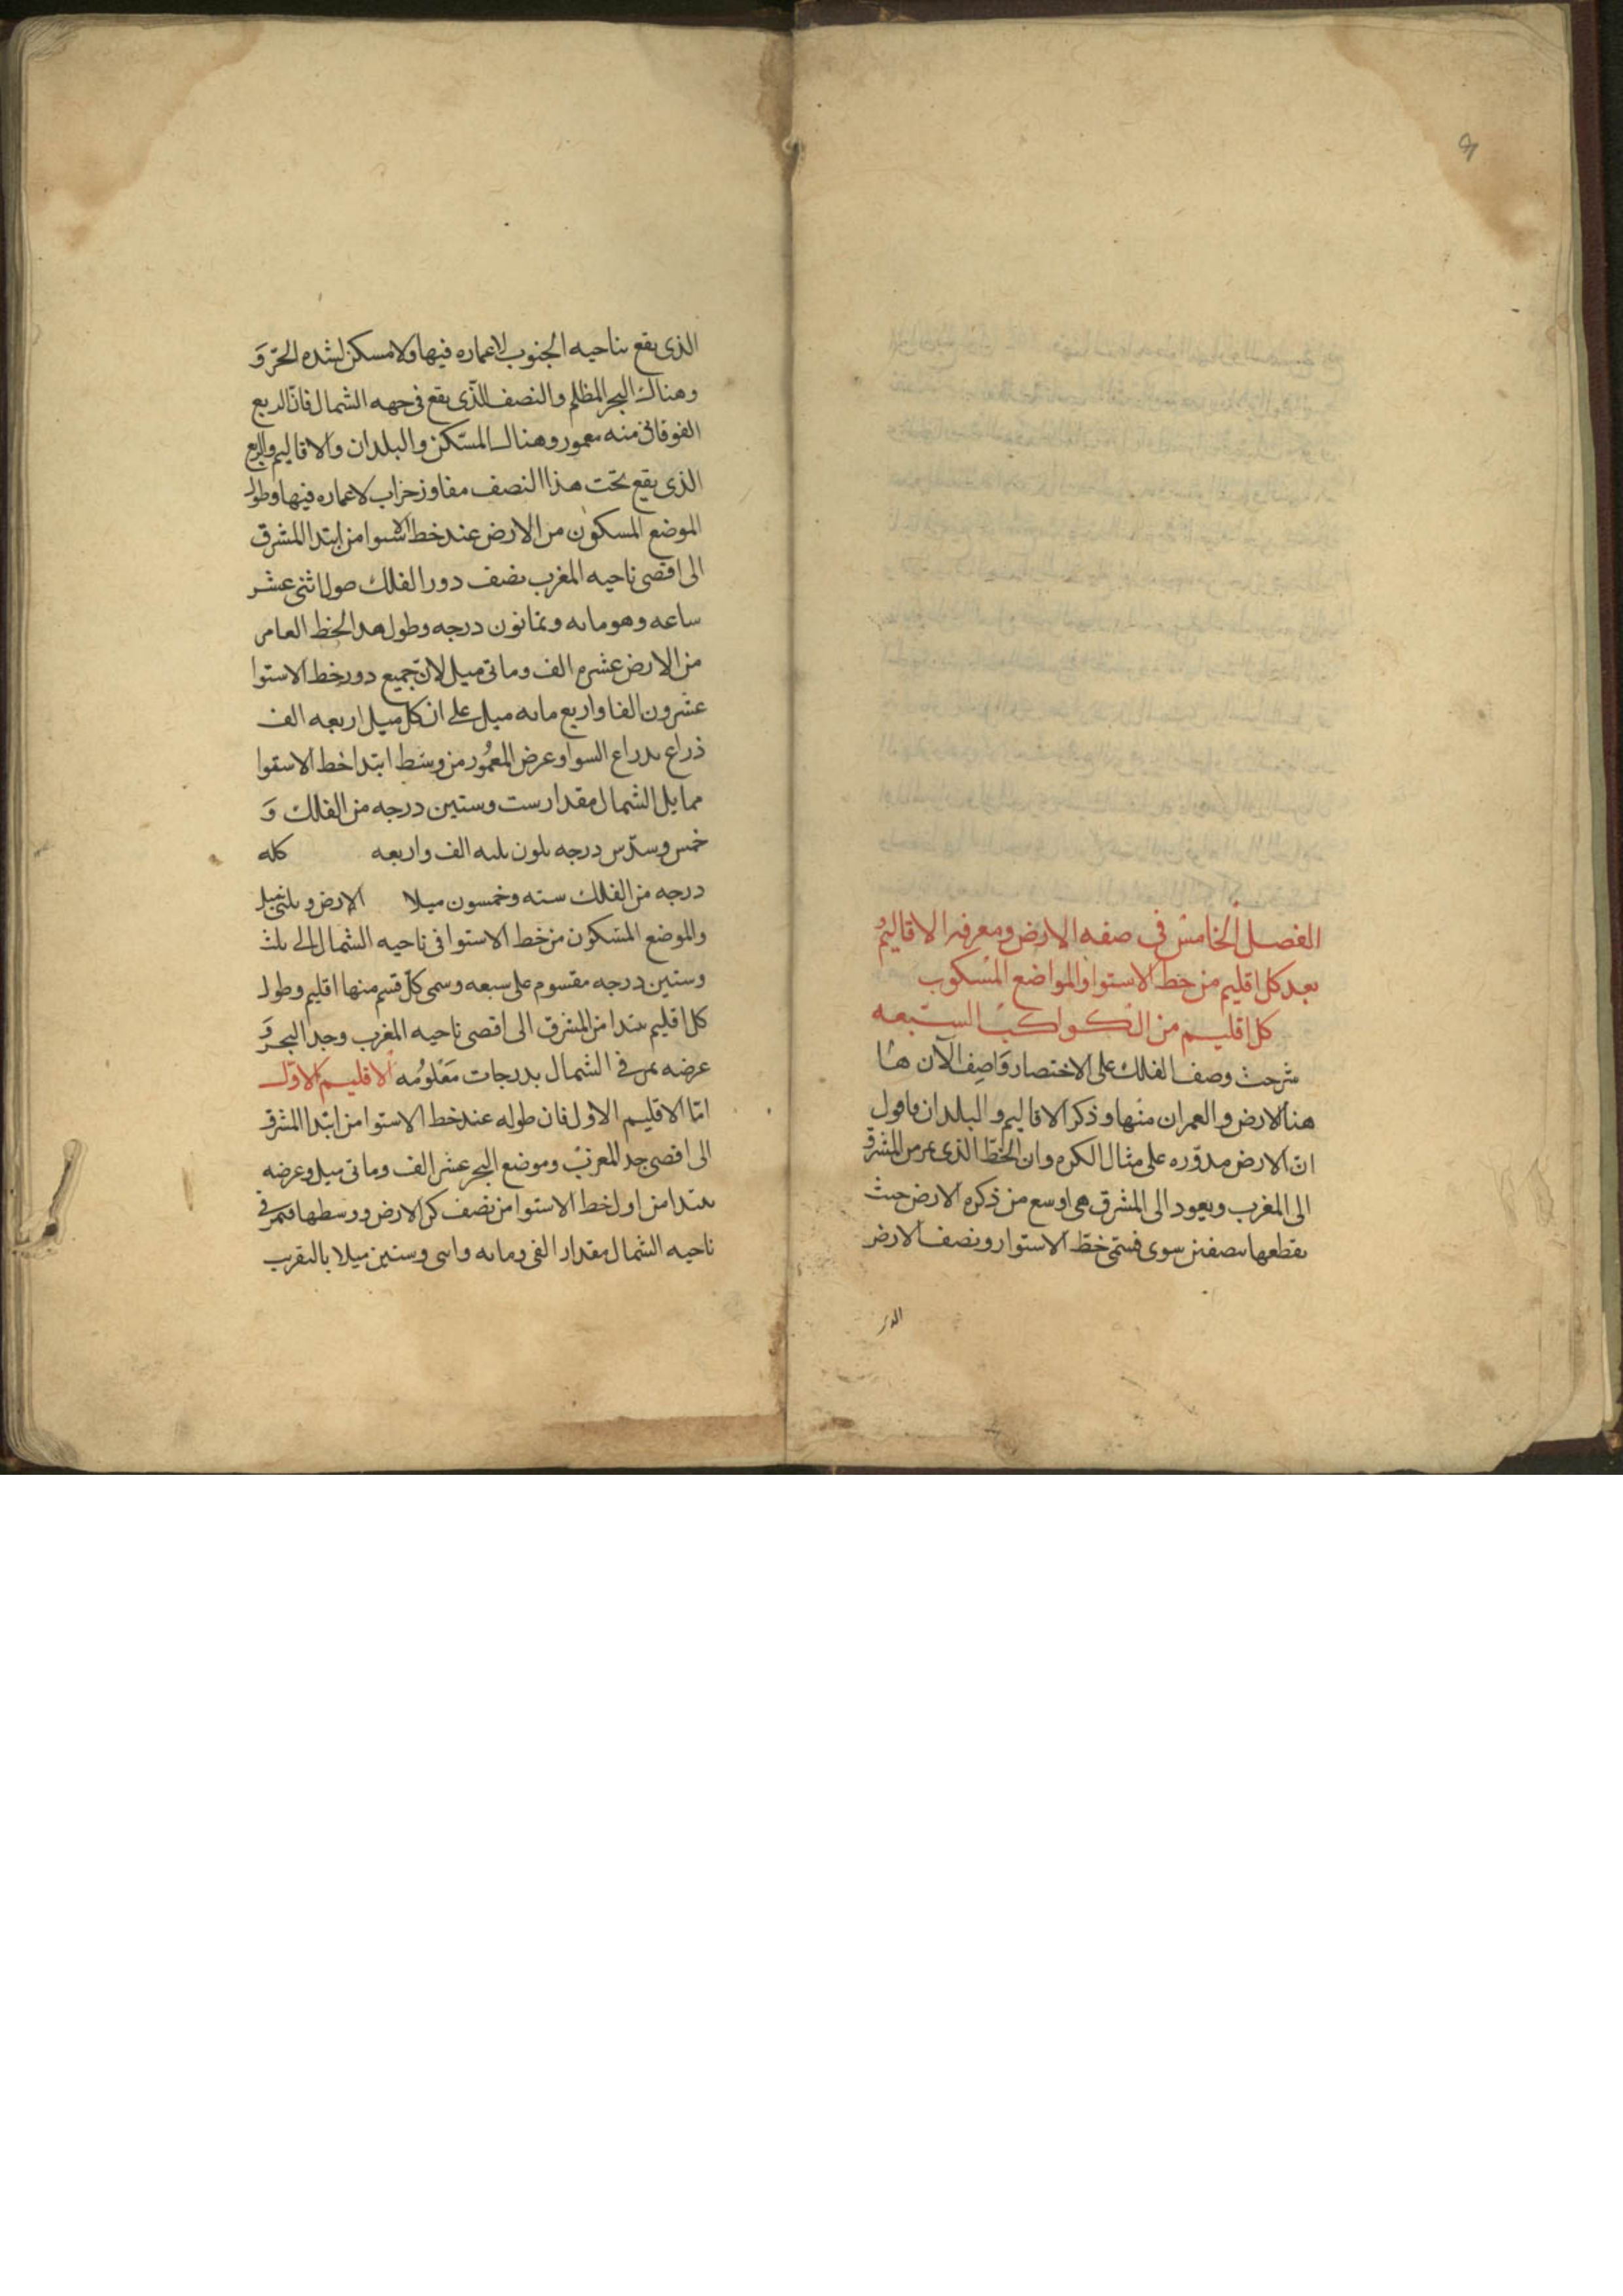 الفصل الخامس في صفه الارض ومعرفه الاقاليم و
بعد كل اقليم من خط الاستوا والمواضع المسكوب
كل اقليم من الكواكب السبعه
شرحت وصف الفلك على الاختصار واصف الآن هنا
هنا الارض والعمران منها وذكر الاقاليم والبلدان فاقول
ان الارض مدوره على مثال الكره وان الخط الذى يمر من المشرق
الى المغرب ويعود الى المشرق هى اوسع من ذكره الارض حيث
يقطعها بنصفين سوى فسمى خط الاستوار ونصف الارض
الذى يقع بناحيه الجنوب لا عماره فيها ولا مسكن لشده الحر و
وهناك البحر المظلم والنصف الذى يقع فى جهه الشمال فان الربع
الفوقانى منه معمور وهناك المسكن والبلدان والاقاليم والربع
الذى يقع تحت هذا النصف مفاوز خراب لا عماره فيها وطول
الموضع المسكون من الارض عند خط الاستوا من ابتدا المشرق
الى اقصى ناحيه المغرب نصف دور الفلك اثنى عشر
ساعه وهو مايه وثمانون درجه وطول هدا الخط العامر
من الارض عشره الف وماتى ميل لان جميع دور خط الاستوا
عشرون الفا واربع مايه ميل على ان كل ميل اربعه الف
ذراع بدراع السوا وعرض المعمور من وسط ابتدا خط الاستوا
مما يلى الشمال مقدار ست وستين درجه من الفلك و
خمس وسدس درجه يكون ثلثه الف واربعه كله
درجه من الفلك سته وخمسون ميلا الارض و ثلثى ميل
والموضع المسكون من خط الاستوا فى ناحيه الشمال الى ثلث
وستين درجه مقسوم على سبعه وسمى كل قسم منها اقليم وطول
كل اقليم يبتدا من المشرق الى اقصى ناحيه المغرب وحد البحر و
عرضه يمر فى الشمال بدرجات معلومه الاقليم الاول
امّا الاقليم الاول فان طوله عند خط الاستوا من ابتدا المشرق
الى اقصى حد المغرب وموضع البحر عشر الف وماتى ميل وعرضه
يبتدا من اول خط الاستوا من نصف كره الارض ووسطها فيمر فى
ناحيه الشمال مقدار الفى ومايه واثنى وستين ميلا بالتقريب